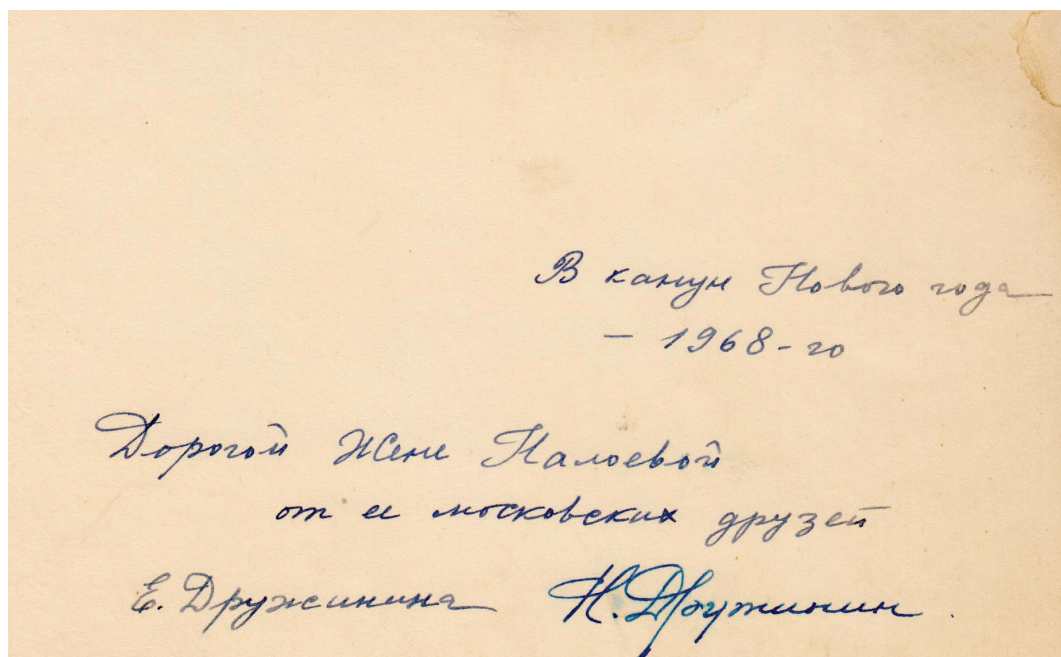 В канун Нового года
— 1968-го
Дорогой Жене Налоевой
от ее московских друзей
Е. Дружинина Н. Дружинин.